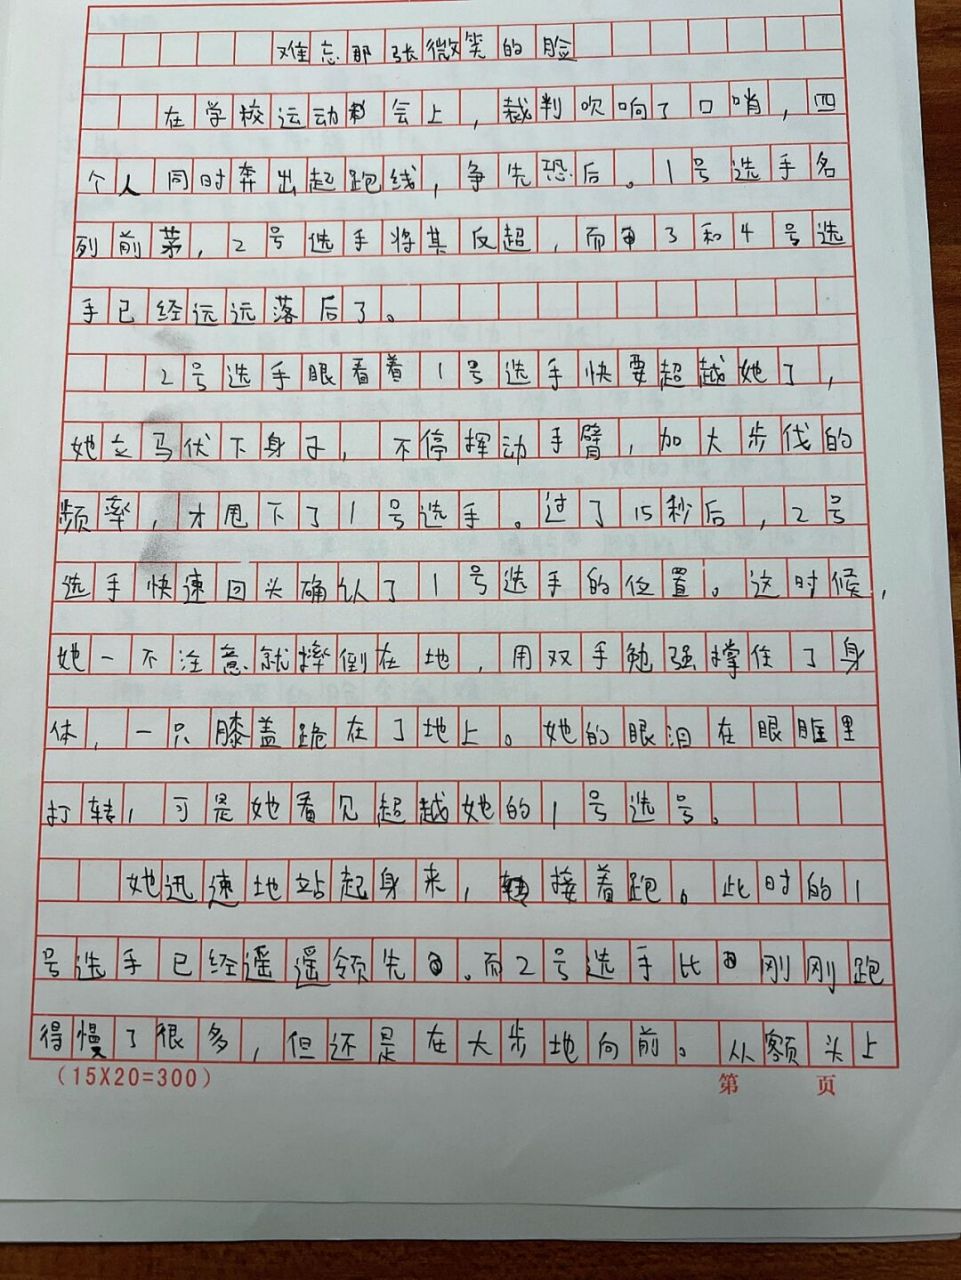 难忘那张微笑的脸
在学校运动会上，裁判吹响了口哨，四
个人同时奔出起跑线，争先恐后。1号选手名
列前茅，2号选手将其反超，而3和4号选
手已经远远落后了。
2号选手眼看着1号选手快要超越她了，
她立马伏下身子，不停挥动手臂，加大步伐的
频率，才甩下了1号选手。过了15秒后，2号
选手快速回头确认了1号选手的位置。这时候，
她一不注意就摔倒在地，用双手勉强撑住了身
体，一只膝盖跪在了地上。她的眼泪在眼眶里
打转，可是她看见超越她的1号选号。
她迅速地站起身来，接着跑。此时的1
号选手已经遥遥领先。而2号选手比刚刚跑
得慢了很多，但还是在大步地向前。从额头上
(15X20=300)
第 页